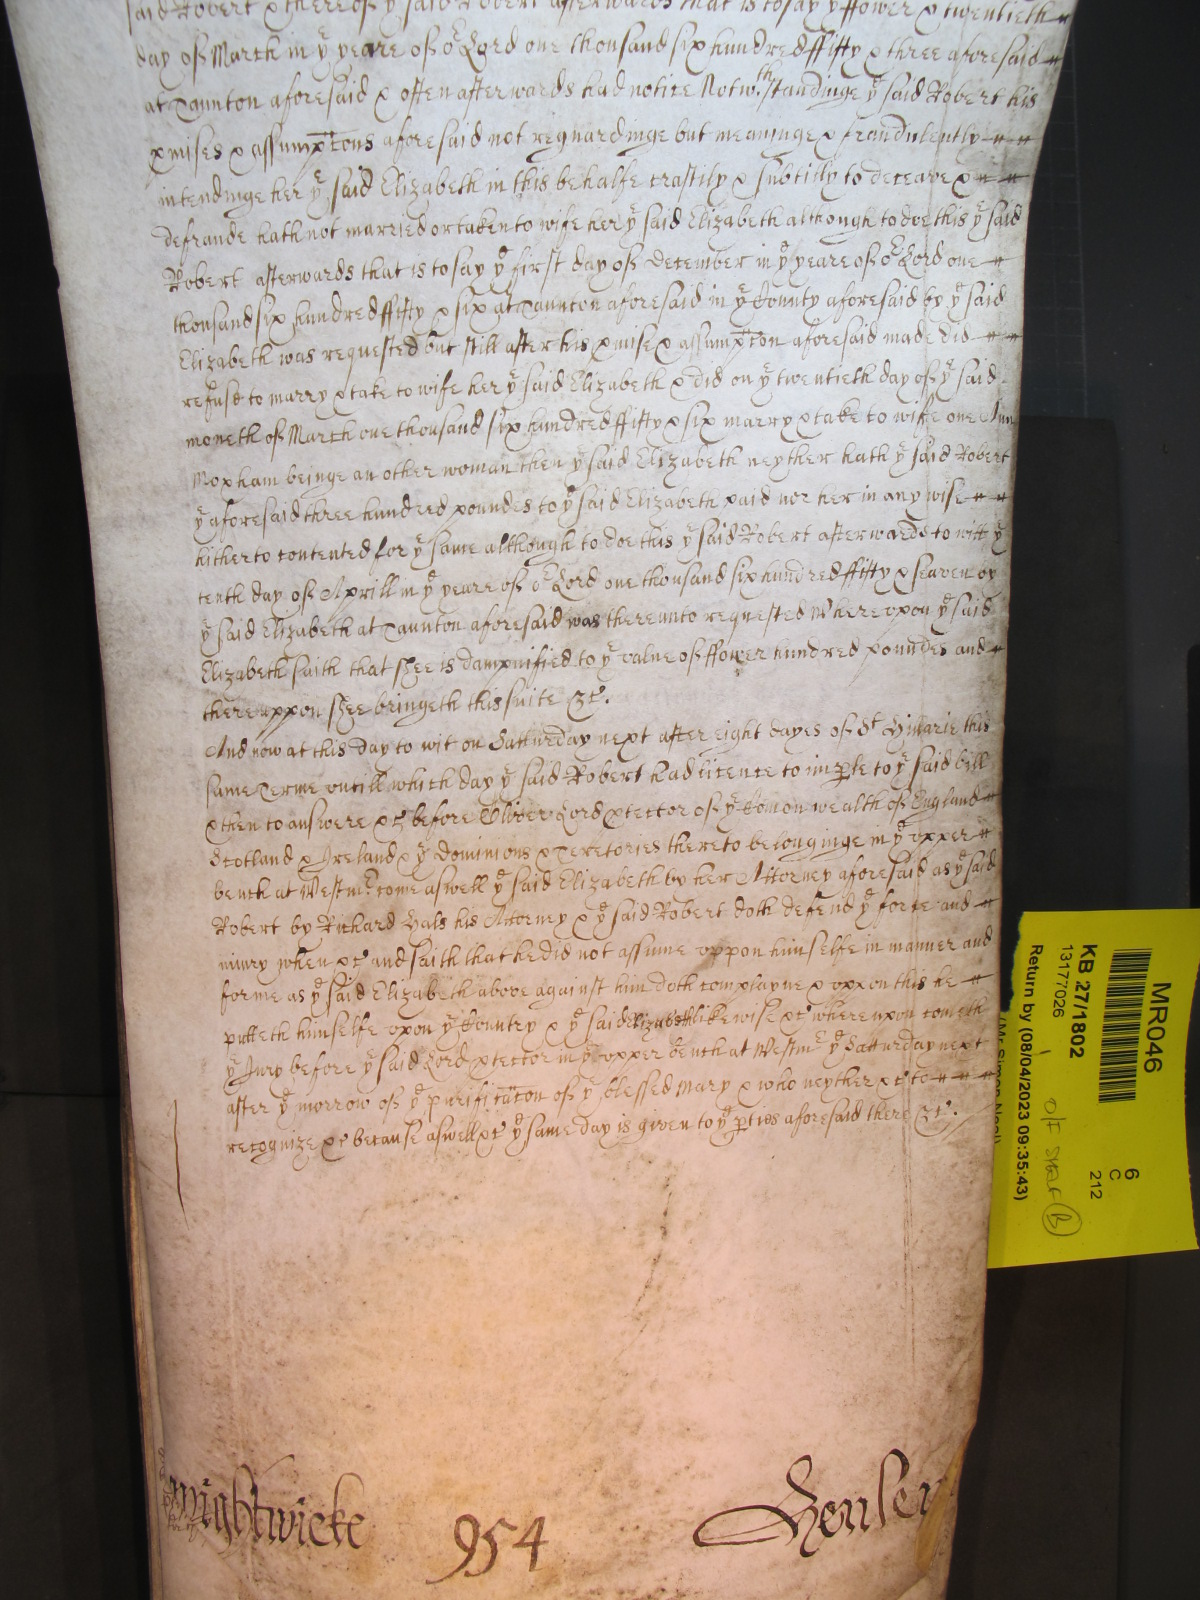 said Robert & thereof ye said Robert afterwards that is to say ye ffower & twentieth
day of March in ye yeare of or Lord one thousand six hundred ffifty & three aforesaid
at Taunton aforesaid & often afterwards had notice Notwthstandinge ye said Robert his
pmises & assumpcons aforesaid not reguardinge but meaninge & fraudulently
intendinge her ye said Elizabeth in this behalfe craftily & subtilly to deceave &
defraude hath not married or taken to wife her ye said Elizabeth although to doe this ye said
Robert afterwards that is to say ye first day of December in ye yeare of or Lord one
thousand six hundred ffifty & six at Taunton aforesaid in ye County aforesaid by ye said
Elizabeth was requested but still after his pmise & assumpcon aforesaid made did
refuse to marry & take to wife her ye said Elizabeth & did on ye twentieth day of ye said
moneth of March one thousand six hundred ffifty & six marry & take to wife one Ann
Moxham beinge an other woman then ye said Elizabeth neyther hath ye said Robert
ye aforesaid three hundred poundes to ye said Elizabeth paid nor her in any wise
hitherto contented for ye same although to doe this ye said Robert afterwards to witt ye
tenth day of Aprill in ye yeare of or Lord one thousand six hundred ffifty & seaven by
ye said Elizabeth at Taunton aforesaid was thereunto requested Whereupon ye said
Elizabeth saith that shee is dampnified to ye value of ffower hundred poundes and
thereuppon shee bringeth this suite &c.
And now at this day to wit on Satturday next after eight dayes of St Hillarie this
same Terme untill which day ye said Robert had licence to imparle to ye said bill
& then to answere &c before Oliver Lord Ptector of ye Comon wealth of England
Scotland & Ireland & ye Dominions & Teretories thereto belonginge in ye upper
bench at Westmr come aswell ye said Elizabeth by her Attorney aforesaid as ye said
Robert by Richard Hals his Attorney & ye said Robert doth defend ye force and
iniury when &c and saith that he did not assume uppon himselfe in manner and
forme as ye said Elizabeth above against him doth complayne & uppon this he
putteth himselfe upon ye Country & ye said Elizabeth likewise &c whereupon cometh
ye Jury before ye said Lord Ptector in ye upper bench at Westmr ye Satturday next
after ye morrow of ye purificacon of ye blessed Mary & who neyther &c to
recognize &c because aswell &c ye same day is given to ye pties aforesaid there &c.
Wightwicke
954
Henley
MR046
KB 27/1802
13177026
6
C
212
Return by (08/04/2023 09:35:43)
O/F SHELF B